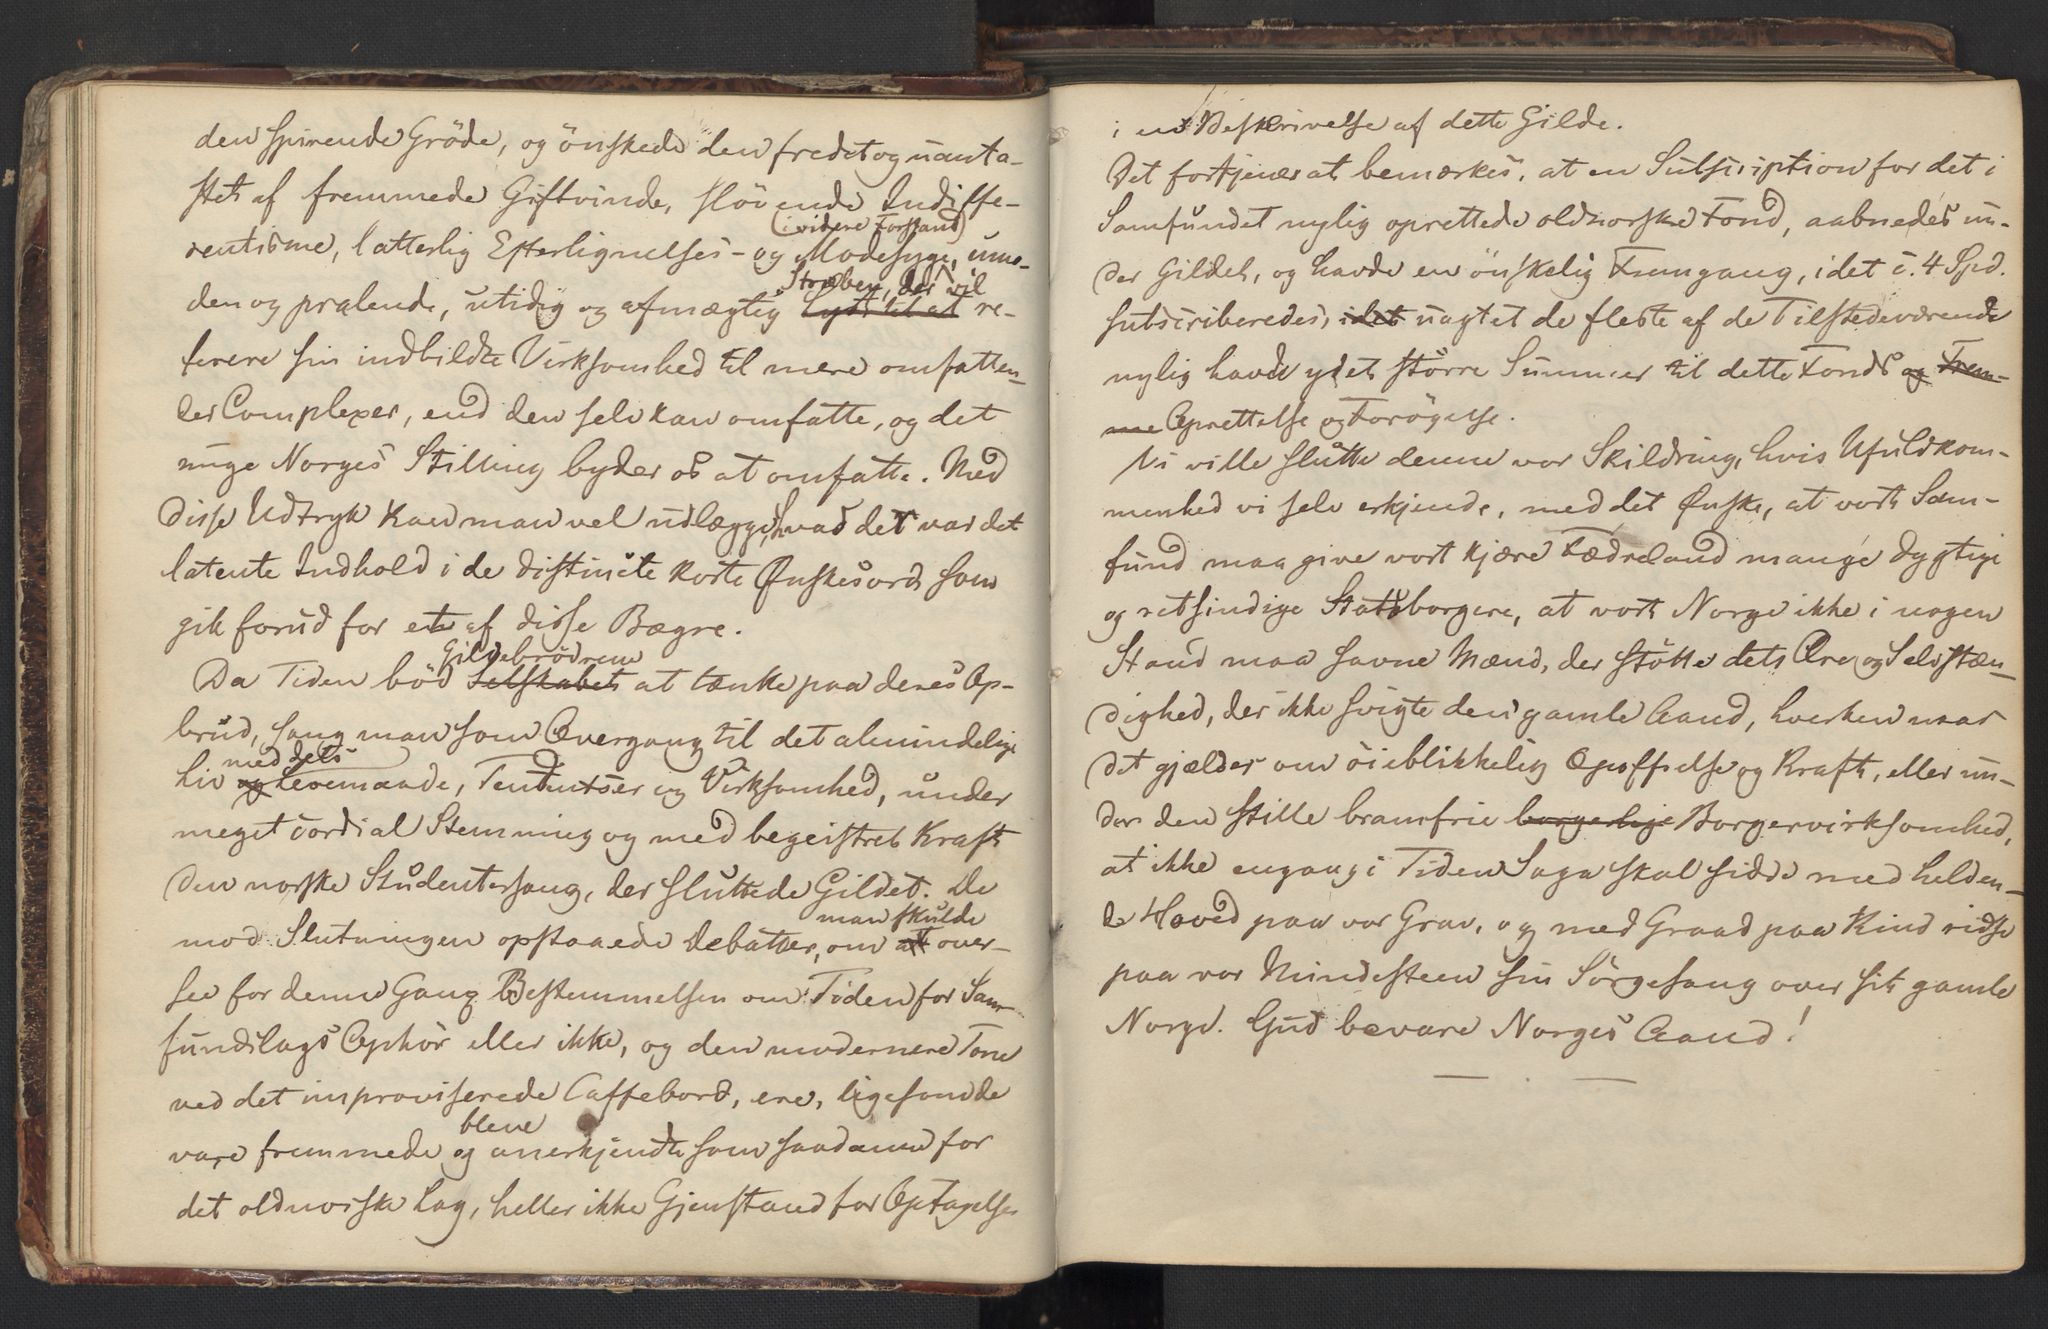 den spirende Gröde, og önskede den fredet og uanta-
stet af fremmede Giftvinde, slövende Indiffe-
(i videre Forstand)
rentisme, latterlig Efterlignelses- og Modesyge, umo-
Stræben, der vil
den og pralende, utidig og afmægtig Lyst til at re-
ferere sin indbildte Virksomhed til mere omfatten-
der Complexer, end den selv kan omfatte, og det
unge Norges Stilling byder os at omfatte. Med
disse Udtryk kan man vel udlægge, hvad der var det
latente Indhold i de distincte korte Ønskesord som
gik forud for et af disse Bægre.
Gildebrödrene
Da Tiden böd Selskabet at tænke paa deres Op-
brud, sang man som Overgang til det almindelige
med dets
Liv og Levemaade, Tendentser og Virksomhed, under
meget cordial Stemning og med begeistret Kraft
den norske Studentersang, der sluttede Gildet. De
man skulde
mod Slutningen opstaaede Debatter, om at over-
see for denne Gang Bestemmelsen om Tiden for Sam-
fundslags Ophör eller ikke, og den modernere Tone
ved det improviserede Caffebord, ere, ligesom de
bleve
vare fremmede og anerkjendte som saadanne for
det oldnorske Lag, heller ikke Gjenstand for Optagelse
i en Beskrivelse af dette Gilde.
Det fortjener at bemærkes, at en Subscription for det i
Samfundet nylig oprettede oldnorske Fond, aabnedes un-
der Gildet, og havde en önskelig Fremgang, idet c. 4 Spd.
subscriberedes, idet uagtet de fleste af de Tilstedeværende
nylig havde ydet större Summer til dette Fonds og Frem-
me Oprettelse og Forögelse.
Vi ville slutte denne vor Skildring, hvis Ufuldkom-
menhed vi selv erkjende, med det Ønske, at vort Sam-
fund maa give vort kjære Fædreland mange dygtige
og retsindige Statsborgere, at vort Norge ikke i nogen
Stand maa savne Mænd, der stötte dets Ære og Selvstæn-
dighed, der ikke svigte den gamle Aand, hverken naar
det gjælder om öieblikkelig Opoffrelse og Kraft, eller un-
der den stille bramfrie borgerlige Borgervirksomhed,
at ikke engang i Tiden Saga skal sidde med helden-
de Hoved paa vor Grav, og med Graad paa Kind ridse
paa vor Mindesteen sin Sörgesang over sit gamle
Norge. Gud bevare Norges Aand!